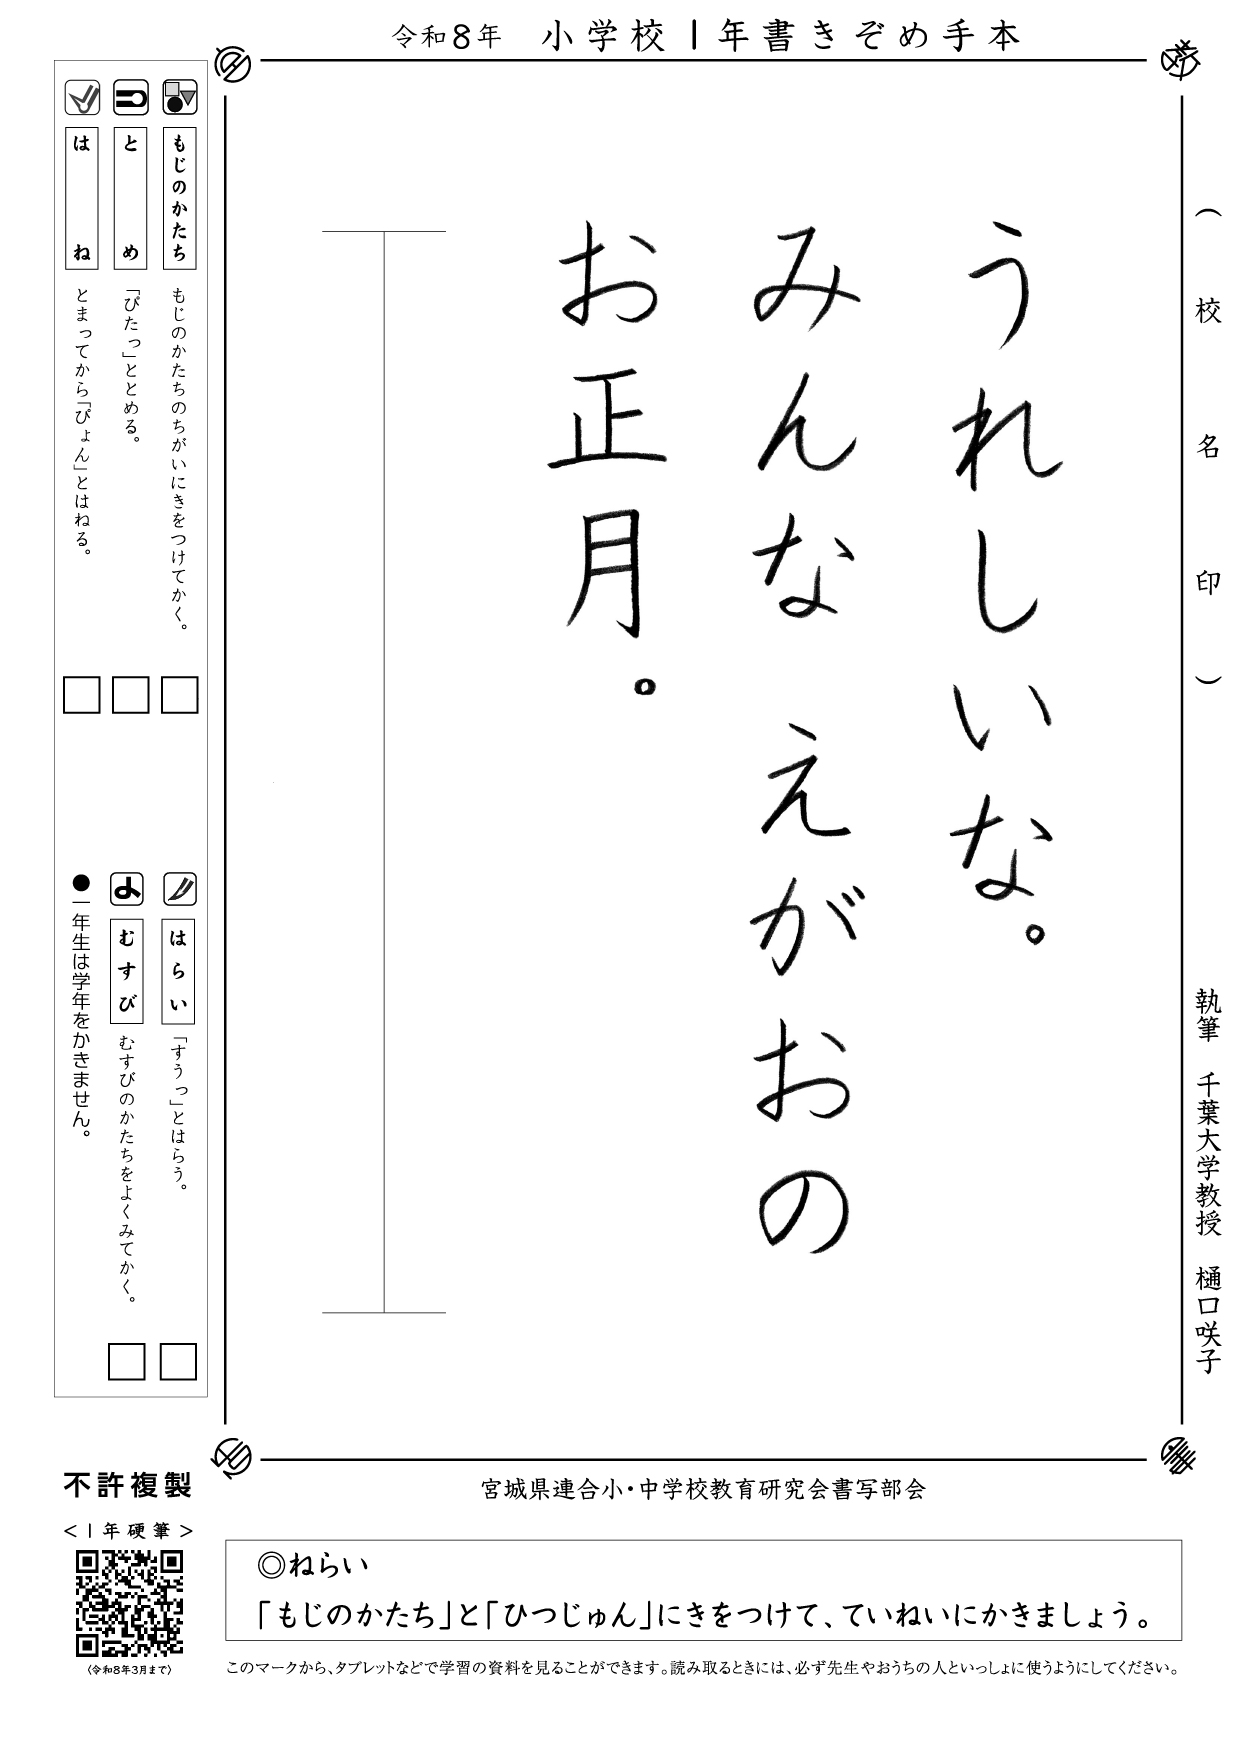 令和8年 小学校1年書きぞめ手本
(校名印)
執筆 千葉大学教授 樋口咲子
うれしいな。
みんな えがおの
お正月。
もじのかたち もじのかたちのちがいにきをつけてかく。
とめ 「ぴたっ」ととめる。
はね とまってから「ぴょん」とはねる。
はらい 「すうっ」とはらう。
むすび むすびのかたちをよくみてかく。
●一年生は学年をかきません。
宮城県連合小・中学校教育研究会書写部会
不許複製
<1年硬筆>
(令和8年3月まで)
◎ねらい
「もじのかたち」と「ひつじゅん」にきをつけて、ていねいにかきましょう。
このマークから、タブレットなどで学習の資料を見ることができます。読み取るときには、必ず先生やおうちの人といっしょに使うようにしてください。